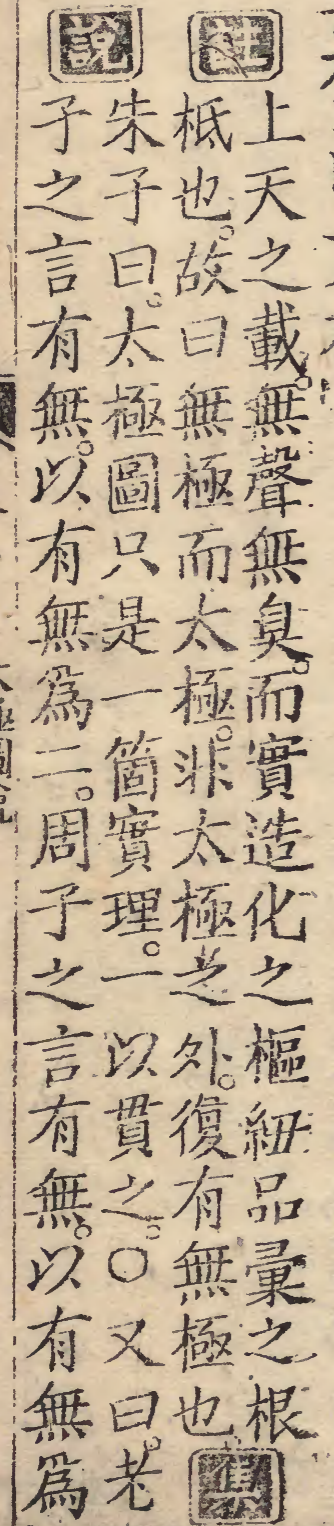 註
上天之載。無聲無臭。而實造化之樞紐品彙之根
柢也。故曰無極而太極。非太極之外。復有無極也
集
説
朱子曰。太極圖只是一箇實理。一以貫之。○又曰。老
子之言有無。以有無爲二。周子之言有無。以有無爲